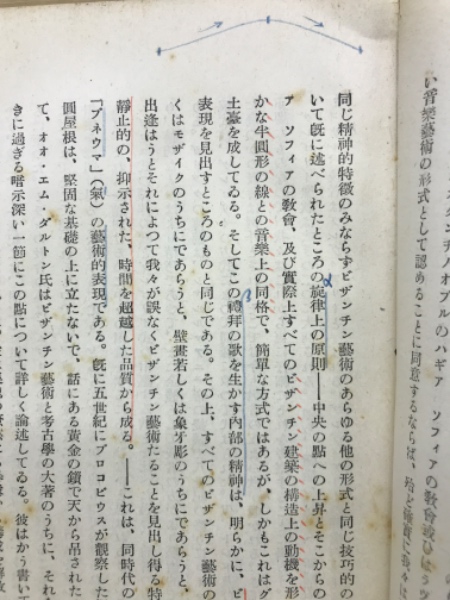 い音樂藝術の形式として認めることに同意するならば、
同じ精神的特徴のみならずビザンチン藝術のあらゆる他の形式と同じ技巧的の
いて既に述べられたところの旋律上の原則――中央の點への上昇とそこからの
ア ソフィアの敎會、及び實際上すべてのビザンチン建築の構造上の動機を形
かな半圓形の線との音樂上の同格で、簡單な方式ではあるが、しかもこれはグ
土臺を成してゐる。そしてこの禮拜の歌を生かす內部の精神は、明らかに、ビ
表現を見出すところのものと同じである。その上、すべてのビザンチン藝術の
くはモザイクのうちにであらうと、壁畫若しくは象牙彫のうちにであらうと、
出逢はうとそれによつて我々が誤なくビザンチン藝術たることを見出し得る特
靜止的の、抑示された、時間を超越した品質から成る。――これは、同時代の
「プネウマ」（氣）の藝術的表現である。既に五世紀にプロコピウスが觀察した
圓屋根は、堅固な基礎の上に立たないで、話にある黃金の鎖で天から吊された
て、オオ・エム・ダルトン氏はビザンチン藝術と考古學の大著のうちに、それ
きに過ぎる暗示深い一節にこの點について詳しく論述してゐる。彼はかう書い